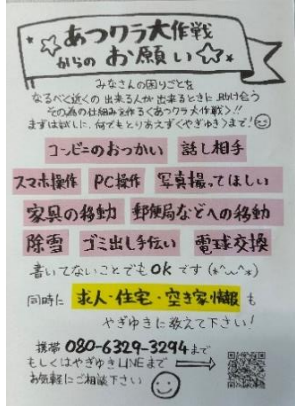 あつクラ大作戦
からの お願い
みなさんの困りごとを
なるべく近くの 出来る人が 出来るときに 助け合う
その為の仕組みを作るくあつクラ大作戦>!!
まずは試しに、何でもとりあえずやぎゆきまで!
コンビニのおつかい 話し相手
スマホ操作 PC操作 写真撮ってほしい
家具の移動 郵便局などへの移動
除雪 ゴミ出し手伝い 電球交換
書いてないことでもOKです(*^^*)
同時に 求人・住宅・空き家情報も
やぎゆきに教えて下さい!
携帯 080-6329-3294まで
もしくはやぎゆきLINEまで
お気軽にご相談下さい